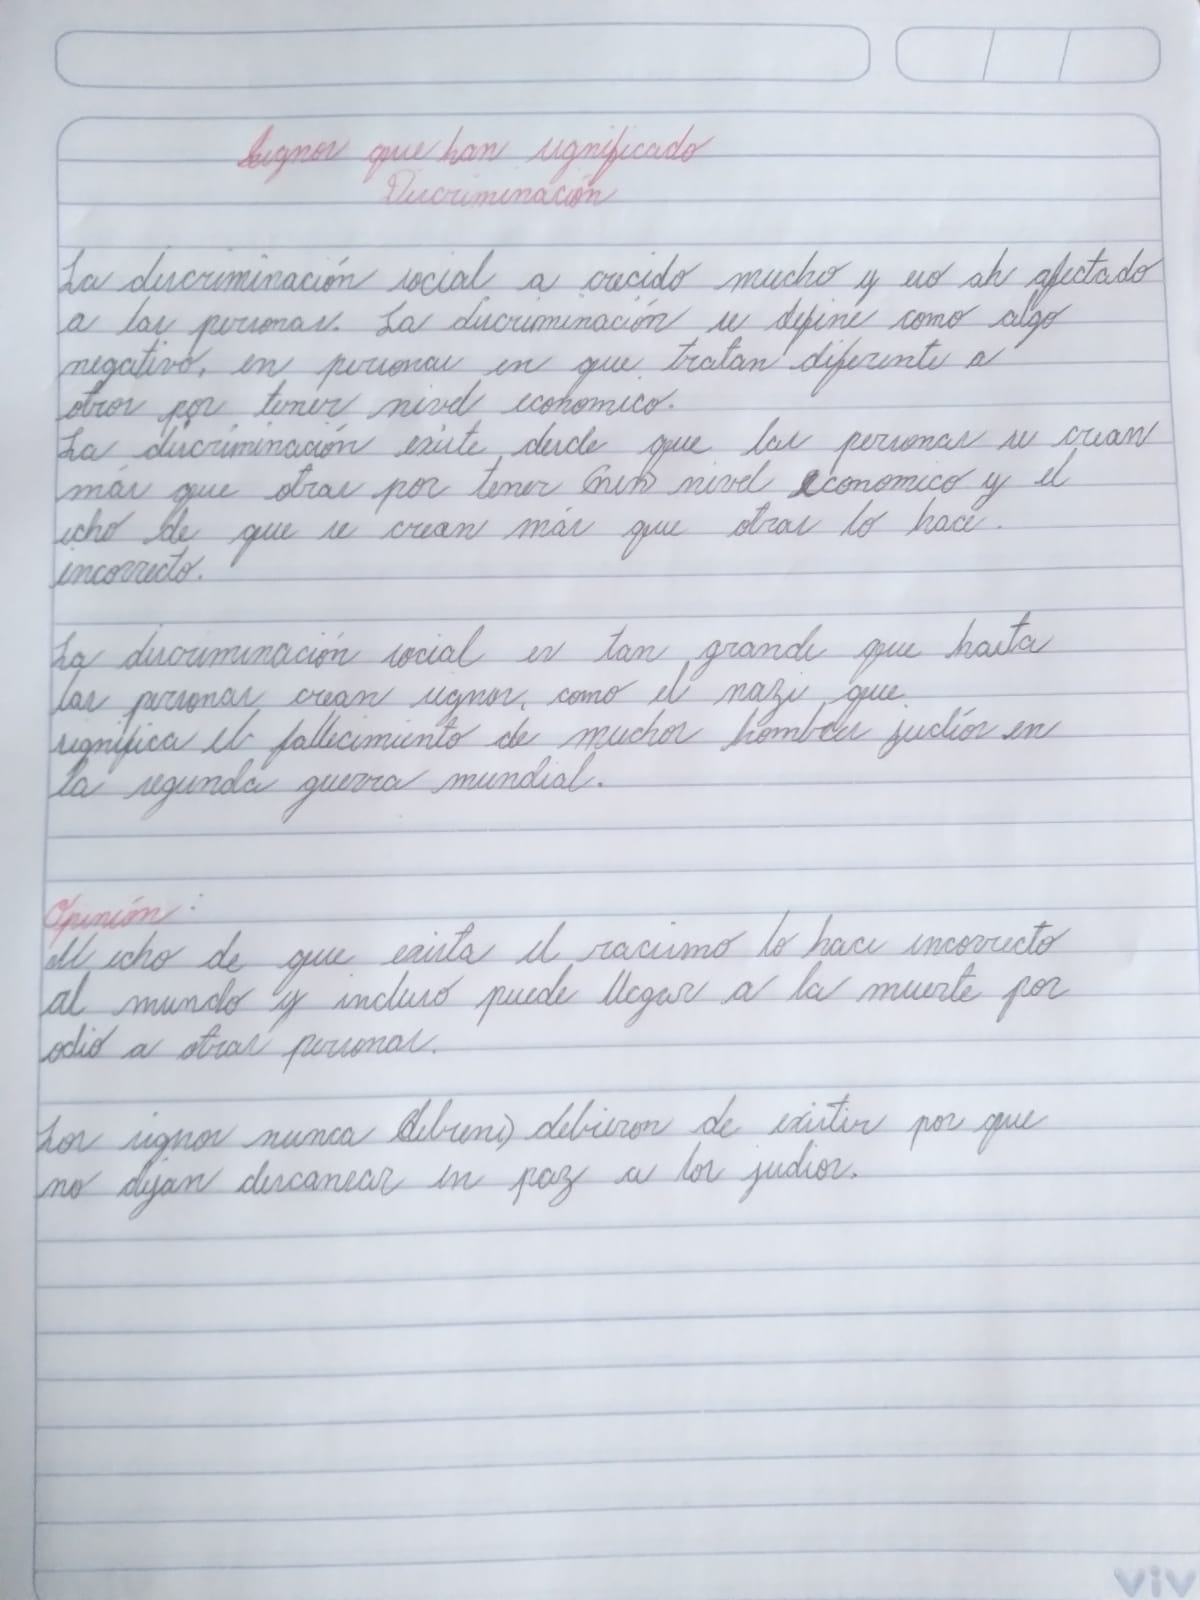 Signos que han significado
Discriminación
La discriminación social a crecido mucho y eso ah afectado
a las personas. La discriminación se define como algo
negativo, en personas en que tratan diferente a
otros por tener nivel economico.
La discriminación existe desde que las personas se crean
más que otras por tener (nin) nivel economico y el
echo de que se crean más que otras lo hace.
incorrecto.
La discriminación social es tan grande que hasta
las personas crean signos, como el nazi que
significa el fallecimiento de muchos hombres judíos en
la segunda guerra mundial.
Opinión:
El echo de que exista el racismo lo hace incorrecto
al mundo y incluso puede llegar a la muerte por
odio a otras personas.
Los signos nunca (debieni) debieron de existir por que
no dejan descansar en paz a los judios.
viv